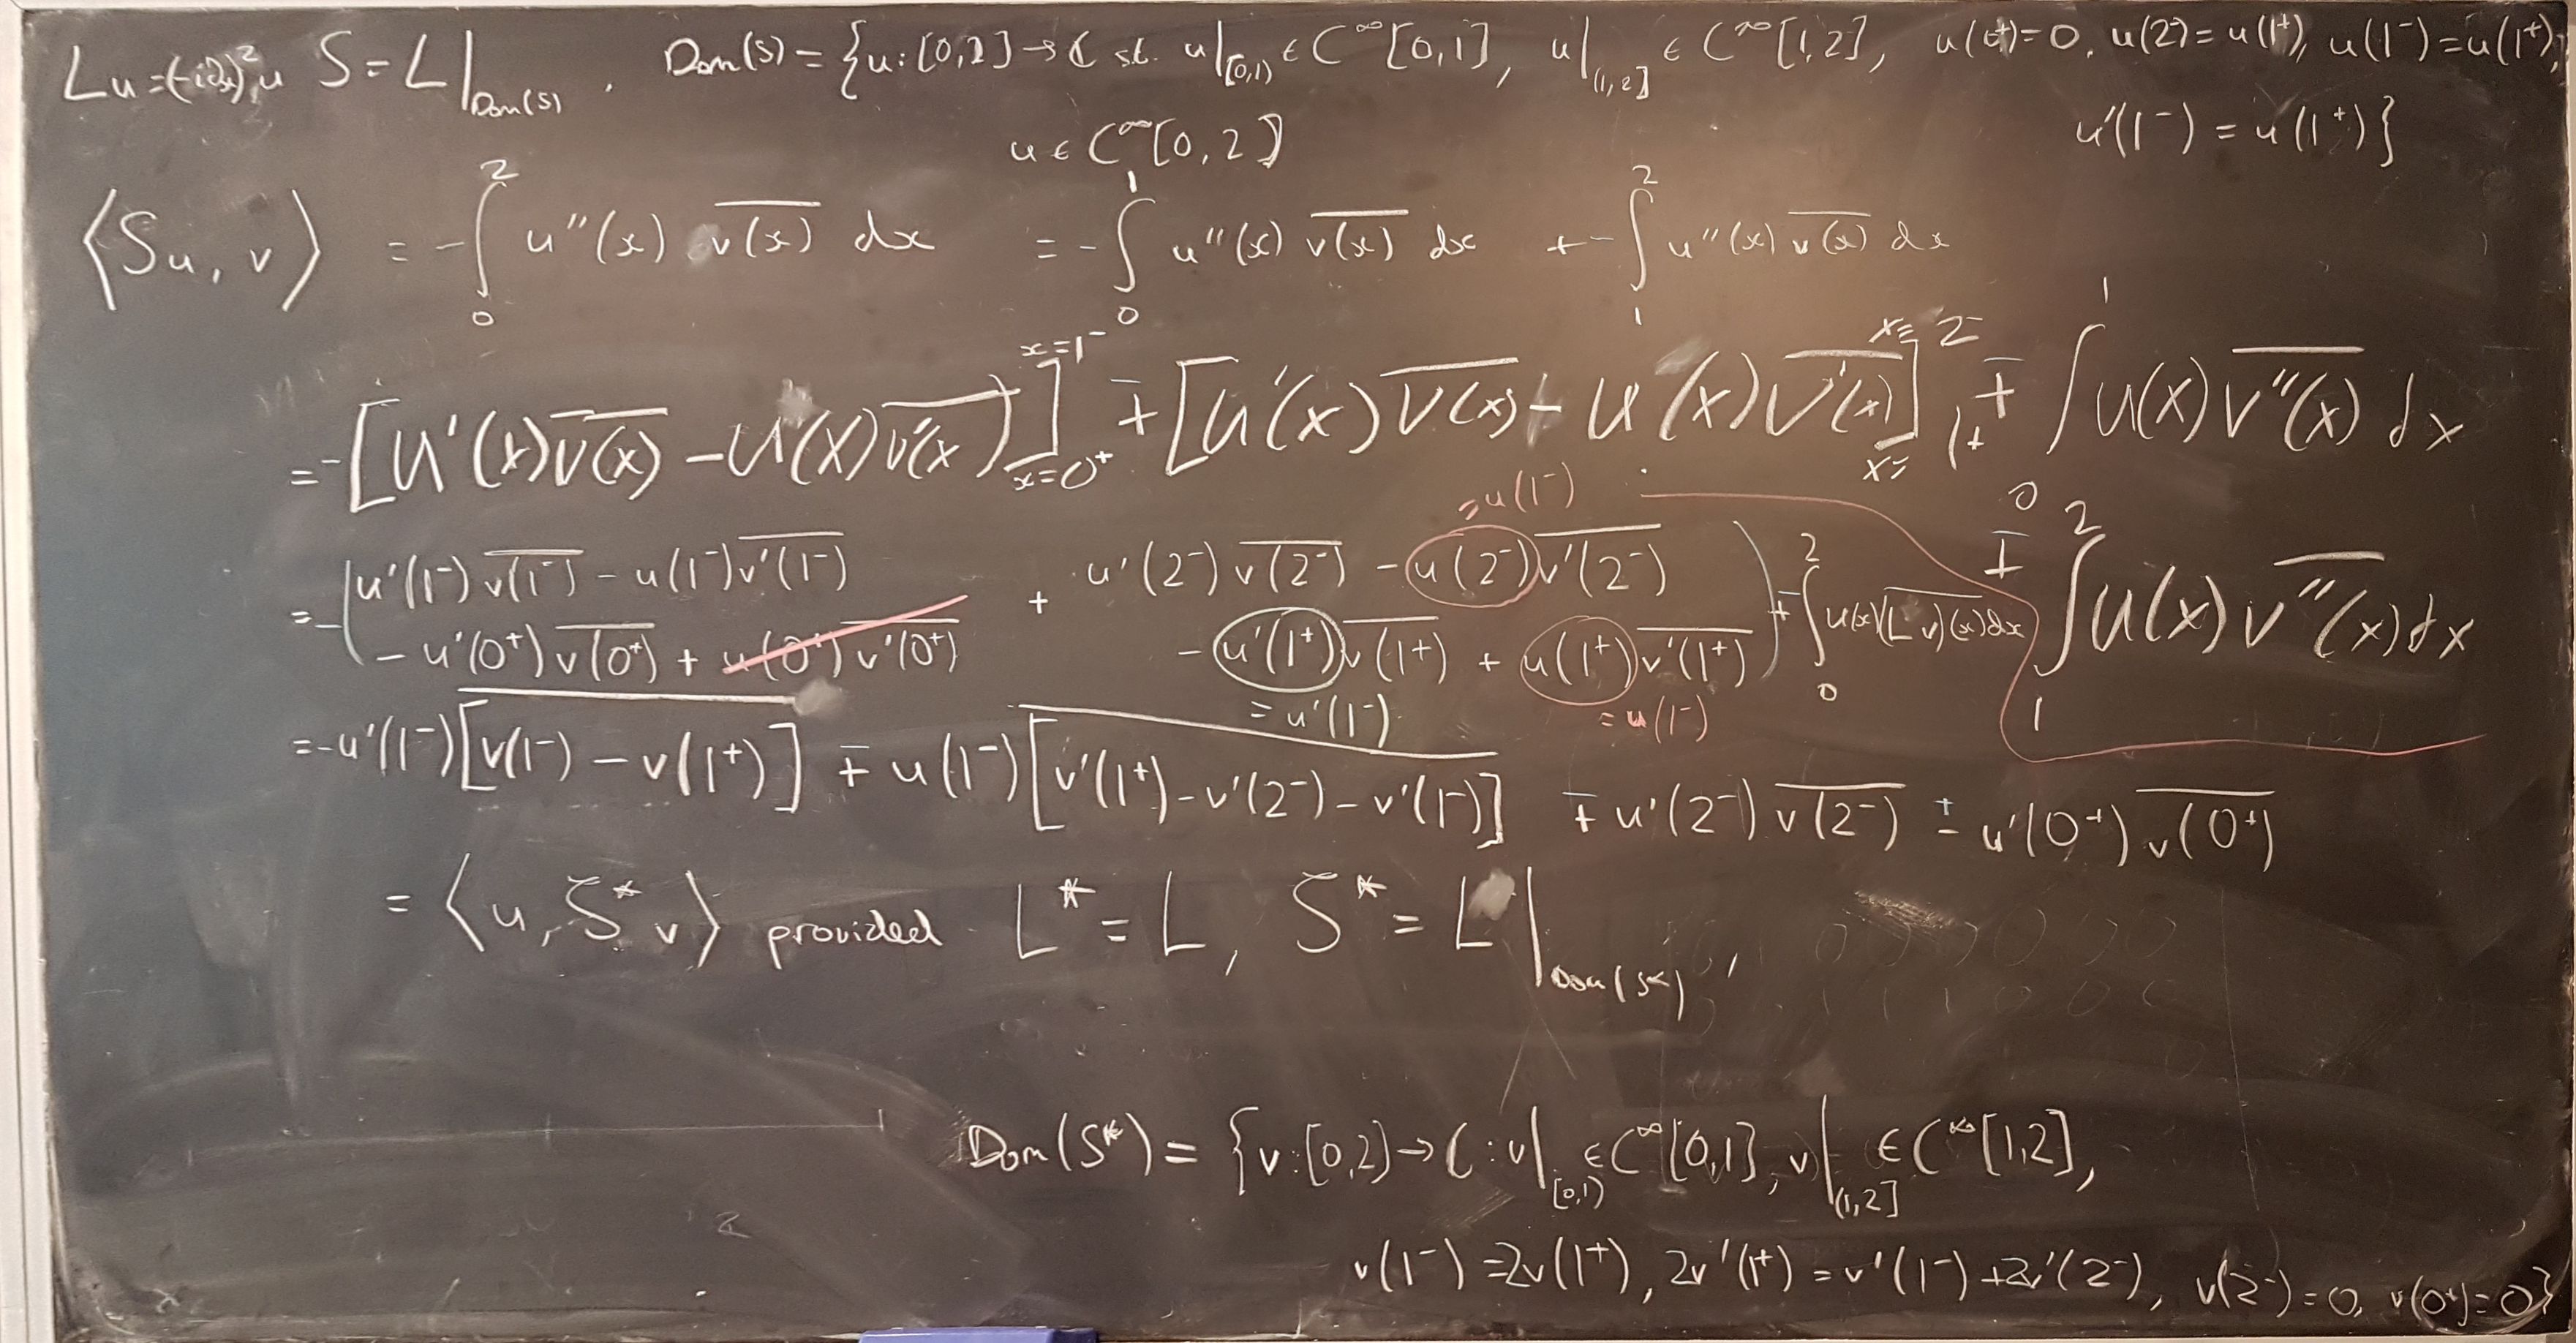 Lu = (-i∂x)²u S = L|Dom(S) , Dom(S) = {u:[0,2]→ℂ s.t. u|[0,1) ∈ C^∞[0,1], u|(1,2] ∈ C^∞[1,2], u(0⁺)=0, u(2⁻)=u(1⁺), u(1⁻)=u(1⁺),
u'(1⁻) = u(1⁺)}
u ∈ C^∞[0,2]
⟨Su, v⟩ = -∫₀² u''(x) \overline{v(x)} dx = -∫₀¹ u''(x) \overline{v(x)} dx + -∫₁² u''(x) \overline{v(x)} dx
= -[u'(x)\overline{v(x)} - u(x)\overline{v'(x)}]_{x=0⁺}^{x=1⁻} ∓ [u'(x)\overline{v(x)} - u(x)\overline{v'(x)}]_{x=1⁺}^{x=2⁻} ∓ ∫₀¹ u(x)\overline{v''(x)} dx
= u(1⁻)
= -(u'(1⁻)\overline{v(1⁻)} - u(1⁻)\overline{v'(1⁻)} + u'(2⁻)\overline{v(2⁻)} - u(2⁻)\overline{v'(2⁻)}
- u'(0⁺)\overline{v(0⁺)} + u(0⁺)\overline{v'(0⁺)} - u'(1⁺)\overline{v(1⁺)} + u(1⁺)\overline{v'(1⁺)}) + ∫₀² u(x)\overline{(Lv)(x)}dx ∓ ∫₁² u(x)\overline{v''(x)}dx
= u'(1⁻) = u(1⁻)
= -u'(1⁻)[\overline{v(1⁻) - v(1⁺)}] ∓ u(1⁻)[\overline{v'(1⁺) - v'(2⁻) - v'(1⁻)}] ∓ u'(2⁻)\overline{v(2⁻)} ± u'(0⁺)\overline{v(0⁺)}
= ⟨u, S*v⟩ provided L* = L, S* = L|Dom(S*) ,
Dom(S*) = {v:[0,2)→ℂ : v|[0,1) ∈ C^∞[0,1], v|(1,2] ∈ C^∞[1,2],
v(1⁻) = 2v(1⁺), 2v'(1⁺) = v'(1⁻) + 2v'(2⁻), v(2⁻) = 0, v(0⁺) = 0}